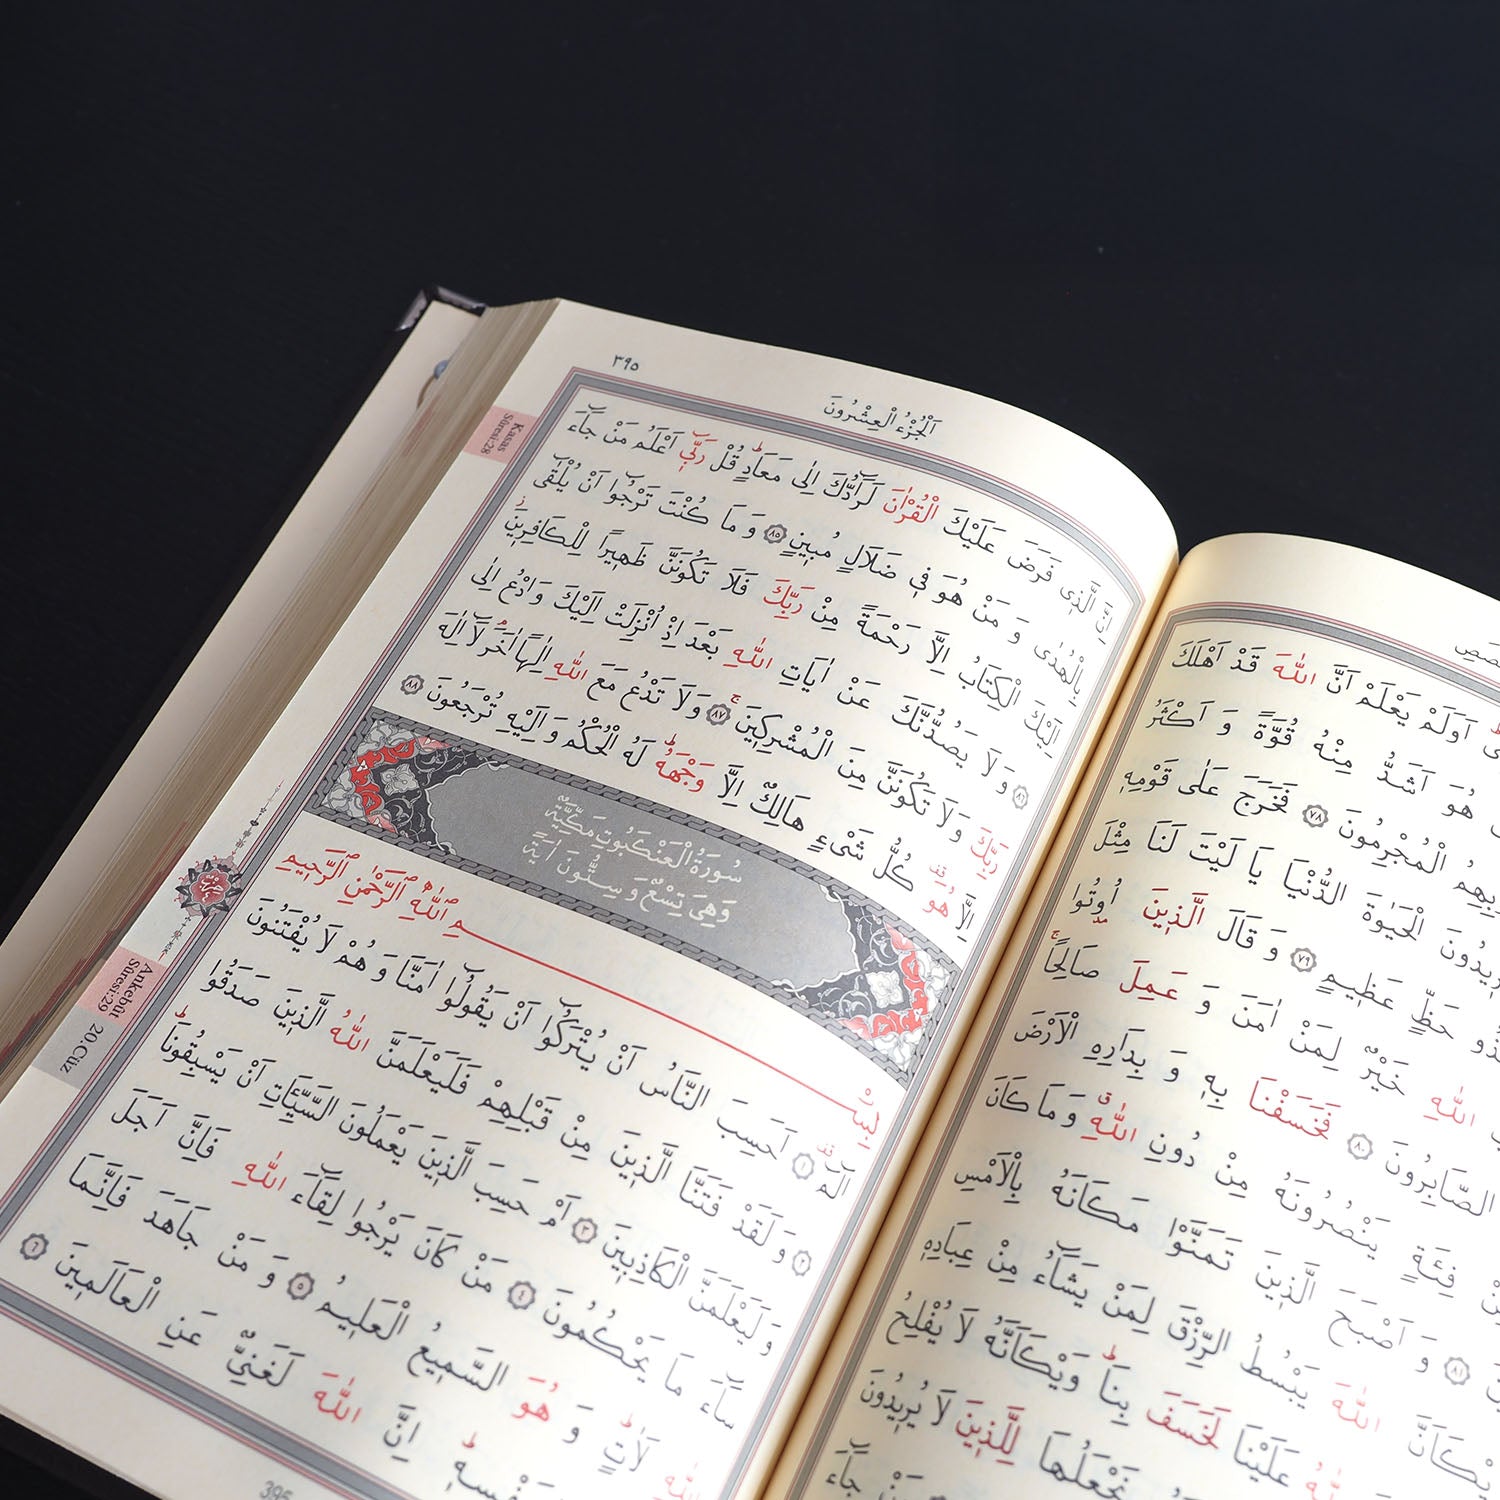 ـصص
اَوَلَمْ يَعْلَمْ اَنَّ اللّٰهَ قَدْ اَهْلَكَ
هُوَ اَشَدُّ مِنْهُ قُوَّةً وَ اَكْثَرُ
الْمُجْرِمُونَ ٧٨ فَخَرَجَ عَلٰى قَوْمِهٖ
الْحَيٰوةَ الدُّنْيَا يَا لَيْتَ لَنَا مِثْلَ
حَظٍّ عَظٖيمٍ ٧٩ وَ قَالَ الَّذٖينَ اُوتُوا
خَيْرٌ لِمَنْ اٰمَنَ وَ عَمِلَ صَالِحًا
الصَّابِرُونَ ٨٠ فَخَسَفْنَا بِهٖ وَ بِدَارِهِ الْاَرْضَ
فِئَةٍ يَنْصُرُونَهُ مِنْ دُونِ اللّٰهِ وَ مَا كَانَ
٨١ وَ اَصْبَحَ الَّذٖينَ تَمَنَّوْا مَكَانَهُ بِالْاَمْسِ
وَيْكَاَنَّ اللّٰهَ يَبْسُطُ الرِّزْقَ لِمَنْ يَشَٓاءُ مِنْ عِبَادِهٖ
اللّٰهُ عَلَيْنَا لَخَسَفَ بِنَا وَيْكَاَنَّهُ لَا يُفْلِحُ
نَجْعَلُهَا لِلَّذٖينَ لَا يُرٖيدُونَ
مَنْ جَٓاءَ
٣٩٥
اَلْجُزْءُ الْعِشْرُونَ
Kasas
Sûresi:28
اِنَّ الَّذٖى فَرَضَ عَلَيْكَ الْقُرْاٰنَ لَرَٓادُّكَ اِلٰى مَعَادٍ قُلْ رَبّٖٓى اَعْلَمُ مَنْ جَٓاءَ
بِالْهُدٰى وَ مَنْ هُوَ فٖى ضَلَالٍ مُبٖينٍ ٨٥ وَ مَا كُنْتَ تَرْجُٓوا اَنْ يُلْقٰٓى
اِلَيْكَ الْكِتَابُ اِلَّا رَحْمَةً مِنْ رَبِّكَ فَلَا تَكُونَنَّ ظَهٖيرًا لِلْكَافِرٖينَ
٨٦ وَ لَا يَصُدُّنَّكَ عَنْ اٰيَاتِ اللّٰهِ بَعْدَ اِذْ اُنْزِلَتْ اِلَيْكَ وَ ادْعُ اِلٰى
رَبِّكَ وَ لَا تَكُونَنَّ مِنَ الْمُشْرِكٖينَ ٨٧ وَ لَا تَدْعُ مَعَ اللّٰهِ اِلٰهًا اٰخَرَ لَٓا اِلٰهَ
اِلَّا هُوَ كُلُّ شَىْءٍ هَالِكٌ اِلَّا وَجْهَهُ لَهُ الْحُكْمُ وَ اِلَيْهِ تُرْجَعُونَ ٨٨
سُورَةُ الْعَنْكَبُوتِ مَكِّيَّةٌ
وَهِىَ تِسْعٌ وَ سِتُّونَ اٰيَةً
بِسْمِ اللّٰهِ الرَّحْمٰنِ الرَّحٖيمِ
Ankebût
Sûresi:29
20.Cüz
الٓمٓ ١ اَحَسِبَ النَّاسُ اَنْ يُتْرَكُٓوا اَنْ يَقُولُٓوا اٰمَنَّا وَ هُمْ لَا يُفْتَنُونَ
٢ وَ لَقَدْ فَتَنَّا الَّذٖينَ مِنْ قَبْلِهِمْ فَلَيَعْلَمَنَّ اللّٰهُ الَّذٖينَ صَدَقُوا
وَ لَيَعْلَمَنَّ الْكَاذِبٖينَ ٣ اَمْ حَسِبَ الَّذٖينَ يَعْمَلُونَ السَّيِّـَٔاتِ اَنْ يَسْبِقُونَا
سَٓاءَ مَا يَحْكُمُونَ ٤ مَنْ كَانَ يَرْجُوا لِقَٓاءَ اللّٰهِ فَاِنَّ اَجَلَ
اللّٰهِ لَاٰتٍ وَ هُوَ السَّمٖيعُ الْعَلٖيمُ ٥ وَ مَنْ جَاهَدَ فَاِنَّمَا
اِنَّ اللّٰهَ لَغَنِىٌّ عَنِ الْعَالَمٖينَ ٦
395